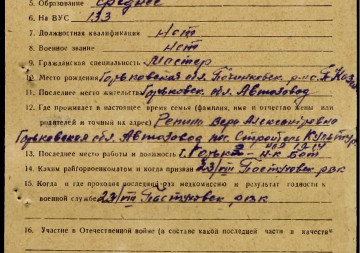 5. Образование среднее
6. На ВУС 133
7. Должностная квалификация нет
8. Военное звание нет
9. Гражданская специальность Мастер
10. Место рождения Горьковская обл. Починковск р-н с.
11. Последнее место жительства Горьковск. обл. Автозавод
12. Где проживает в настоящее время семья (фамилия, имя и отчество жены или
родителей и точный адрес) Репина Вера Александровна
Горьковская обл. Автозавод пос. Стройгаз
13. Последнее место работы и должность г. Горький
14. Каким райгорвоенкоматом и когда призван 23/VII РВК
15. Когда и где проходил последнюю раз медкомиссию и результат годности к
военной службе 23/VII РВК
16. Участие в Отечественной войне (в составе какой последней части и качеств